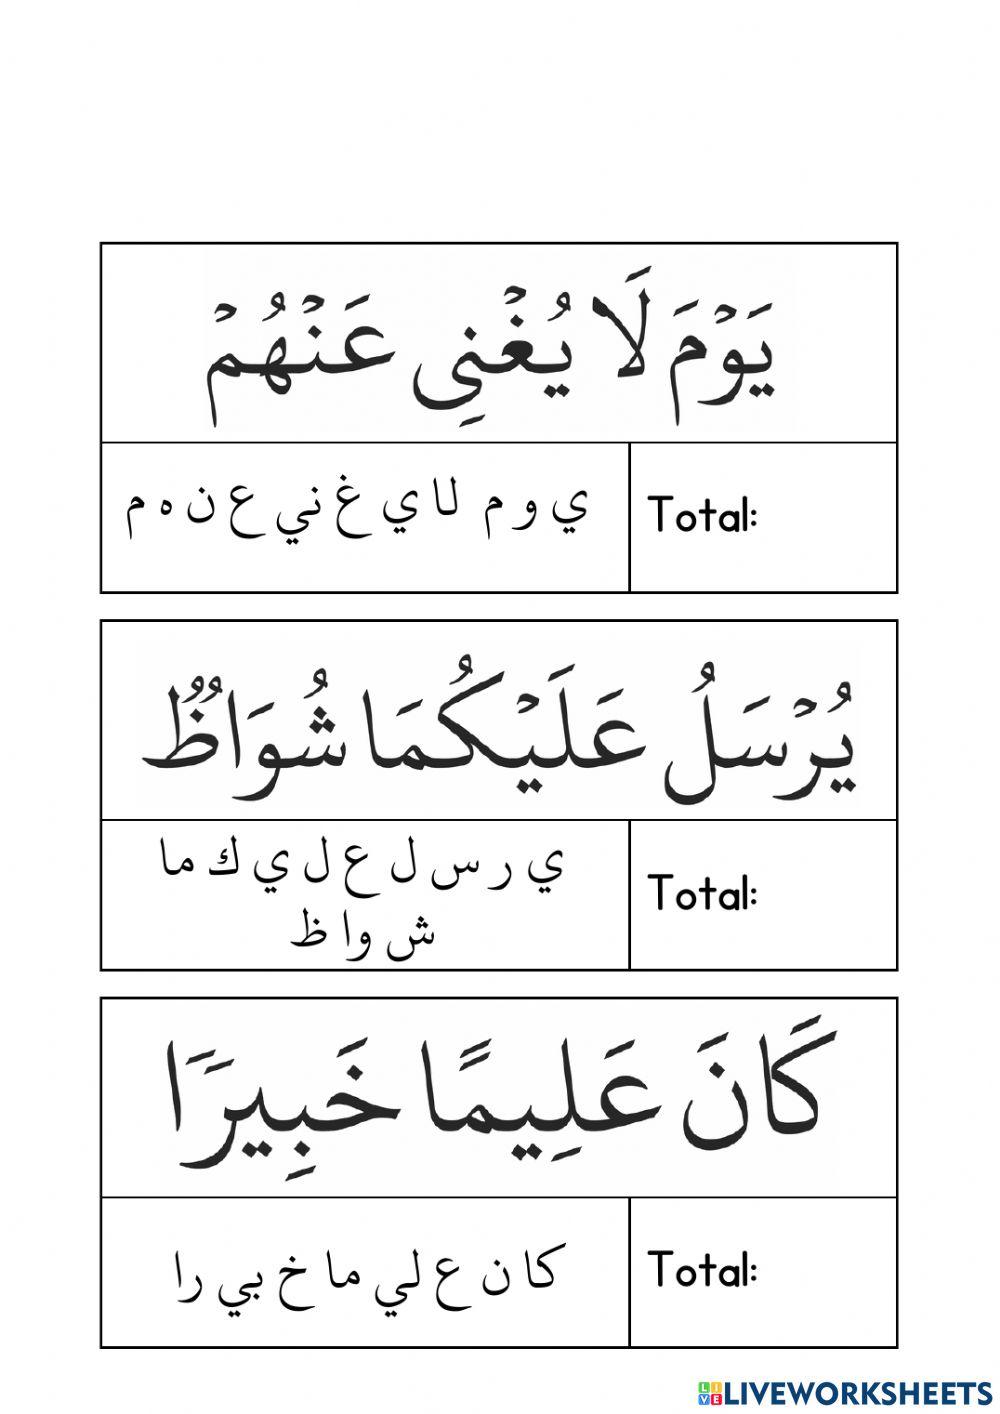 يَوْمَ لَا يُغْنِى عَنْهُمْ
ي و م لا ي غ ني ع ن ه م
Total:
يُرْسَلُ عَلَيْكُمَا شُوَاظٌ
ي ر س ل ع ل ي ك ما
ش وا ظ
Total:
كَانَ عَلِيمًا خَبِيرًا
كا ن ع لي ما خ بي را
Total:
LIVE LIVEWORKSHEETS